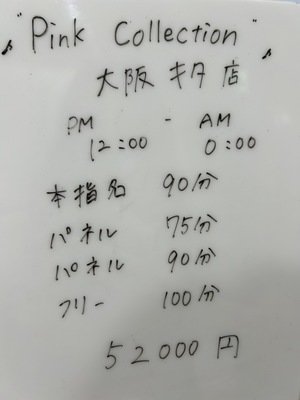 ♪ "Pink Collection" ♪
大阪 キタ 店
PM - AM
12:00 0:00
本指名 90分
パネル 75分
パネル 90分
フリー 100分
52000円